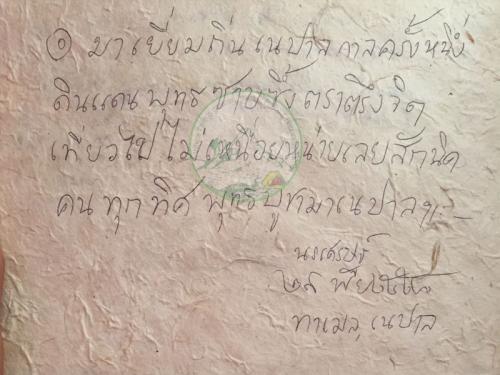 ๏ มาเยี่ยมถิ่นเนปาลกาลครั้งหนึ่ง
ดินแดนพุทธซาบซึ้งตราตรึงจิต
เที่ยวไปไม่เหนื่อยหน่ายเลยสักนิด
คนทุกทิศพุทธบูชามาเนปาลฯ
นรเศรษฐ์
๒๘
ทาเมล เนปาล